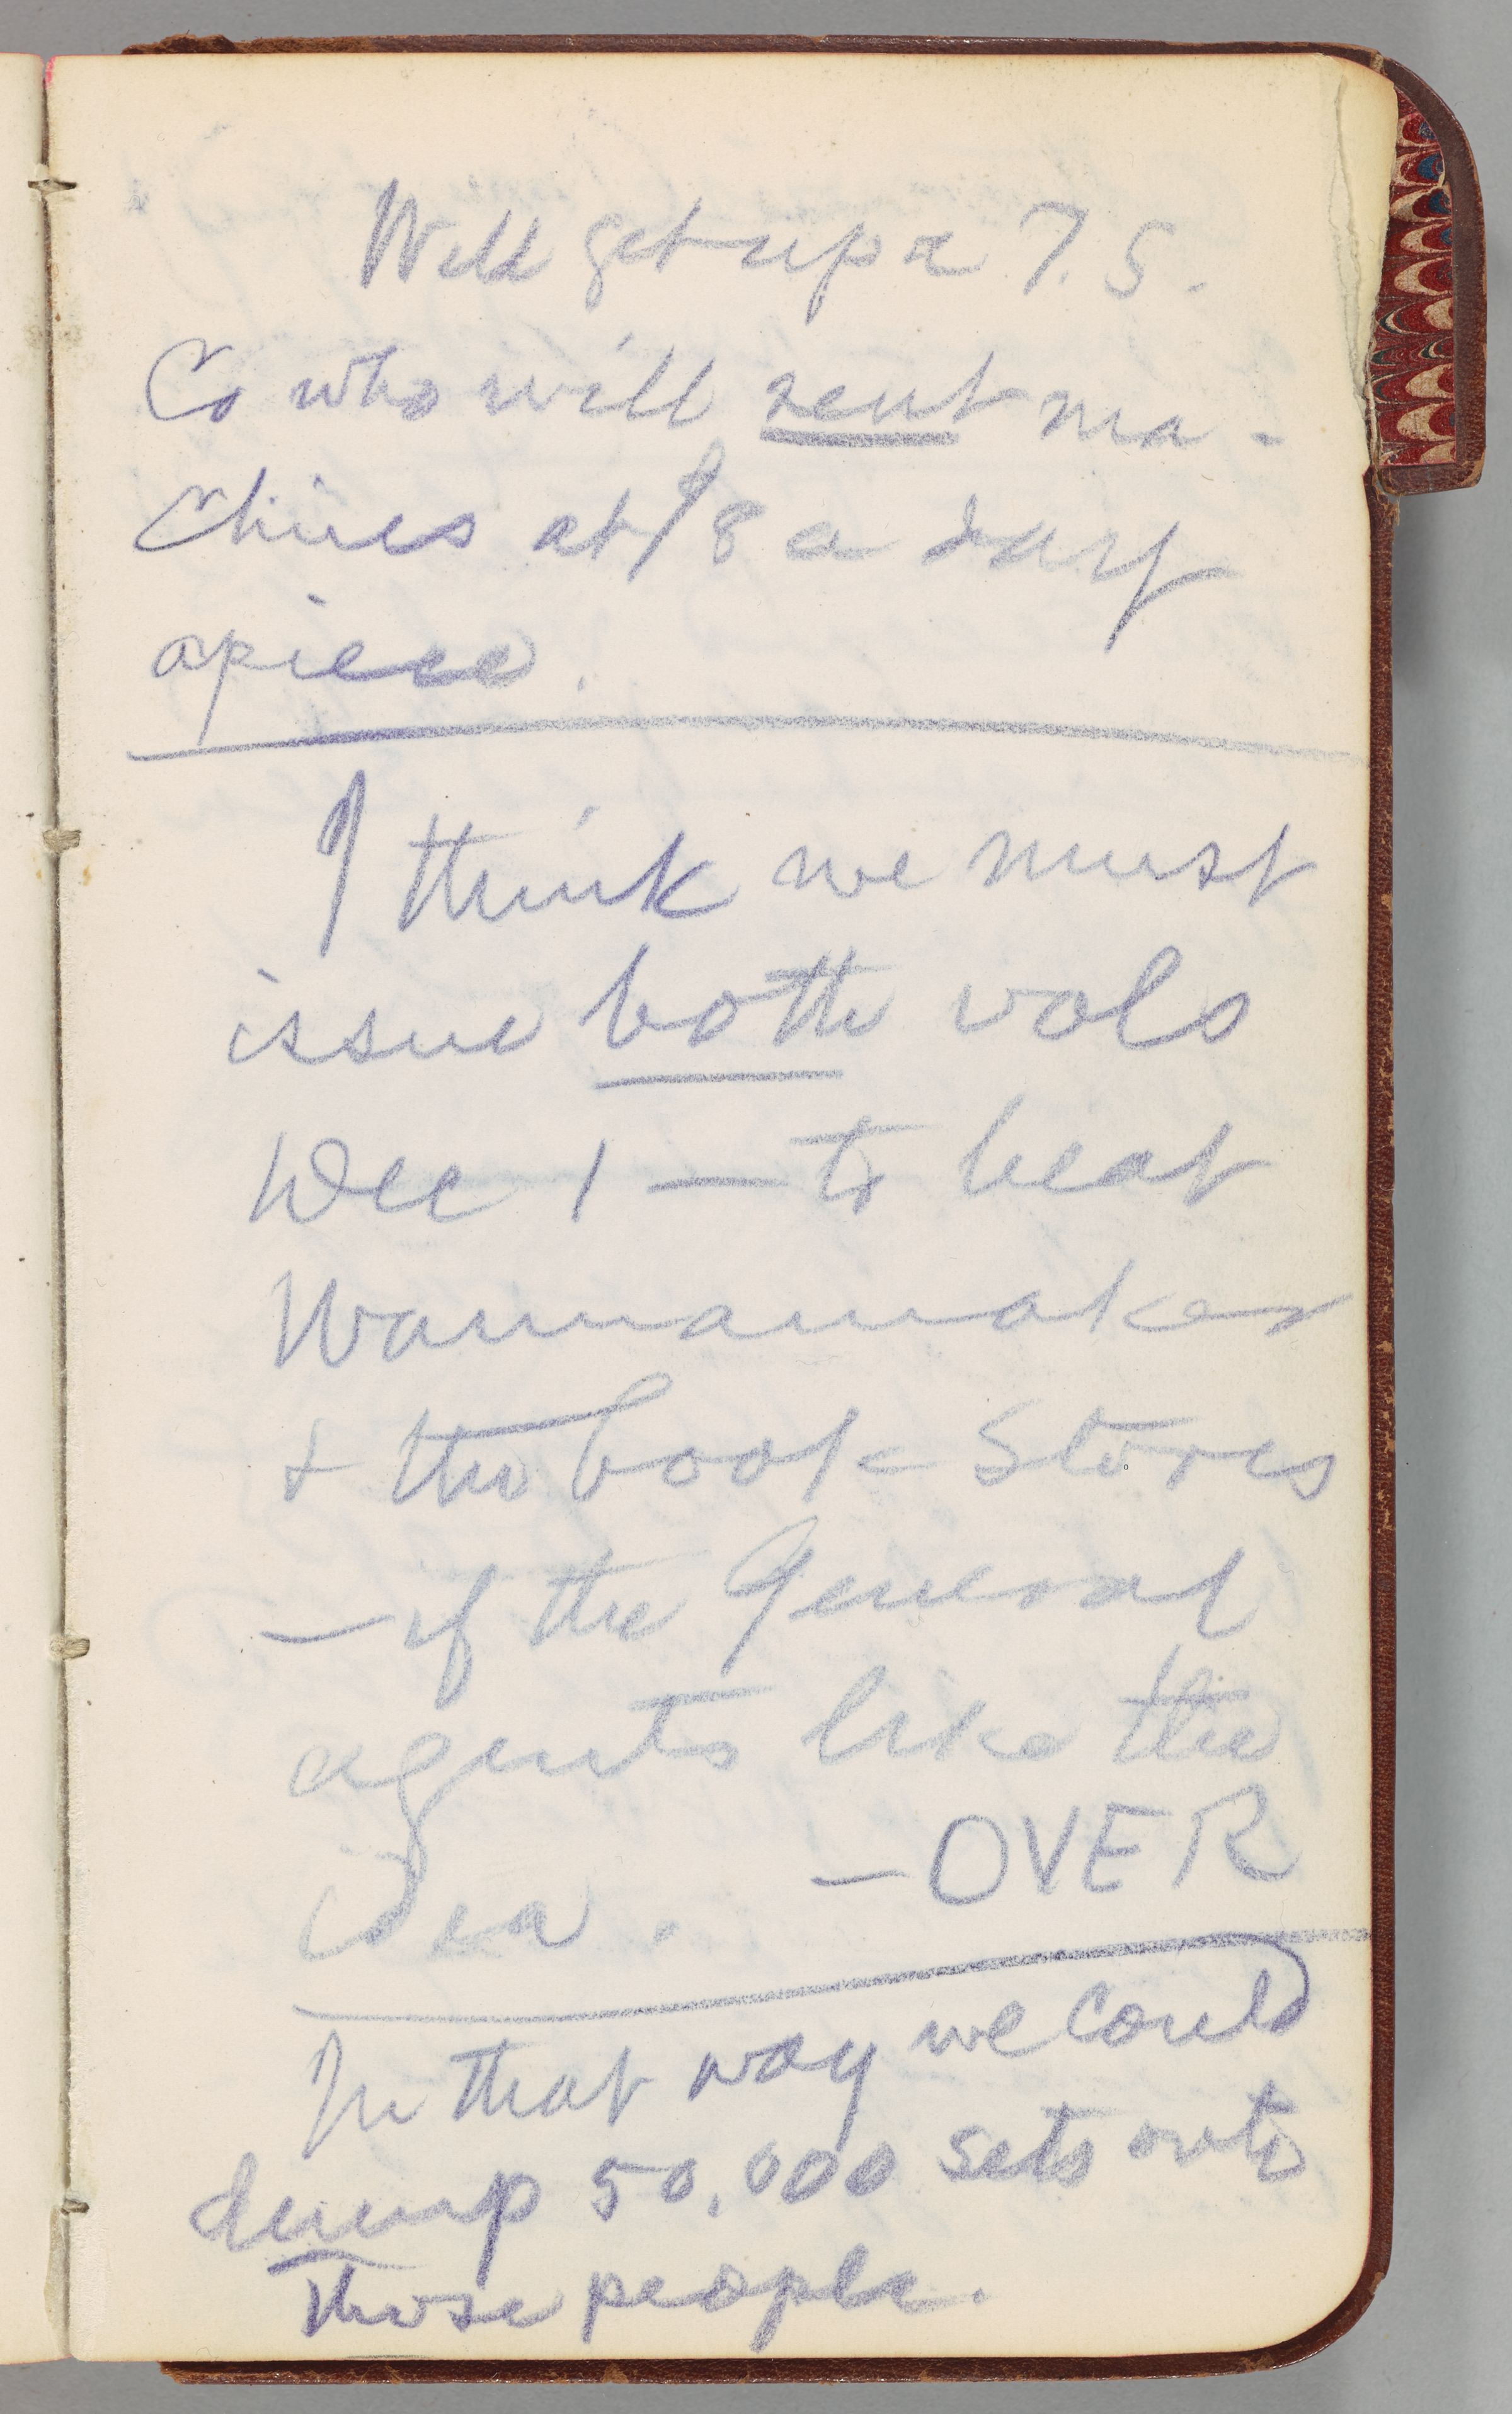 Will get up a T. S.
Co who will rent ma-
chines at $8 a day
apiece.
I think we must
issue both vols
Dec 1 — to beat
Wannamaker
& the book stores
— if the General
agents like the
idea. — OVER
In that way we could
dump 50,000 sets onto
those people.